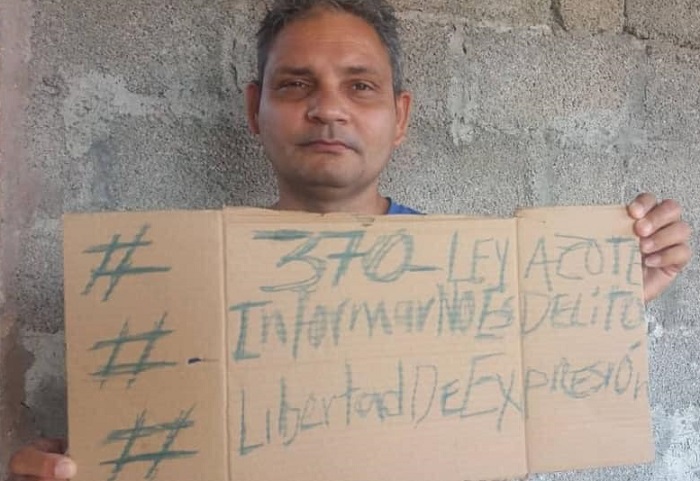 # 370 LEY AZOTE
# Informar No Es DELito
# Libertad De Expresión